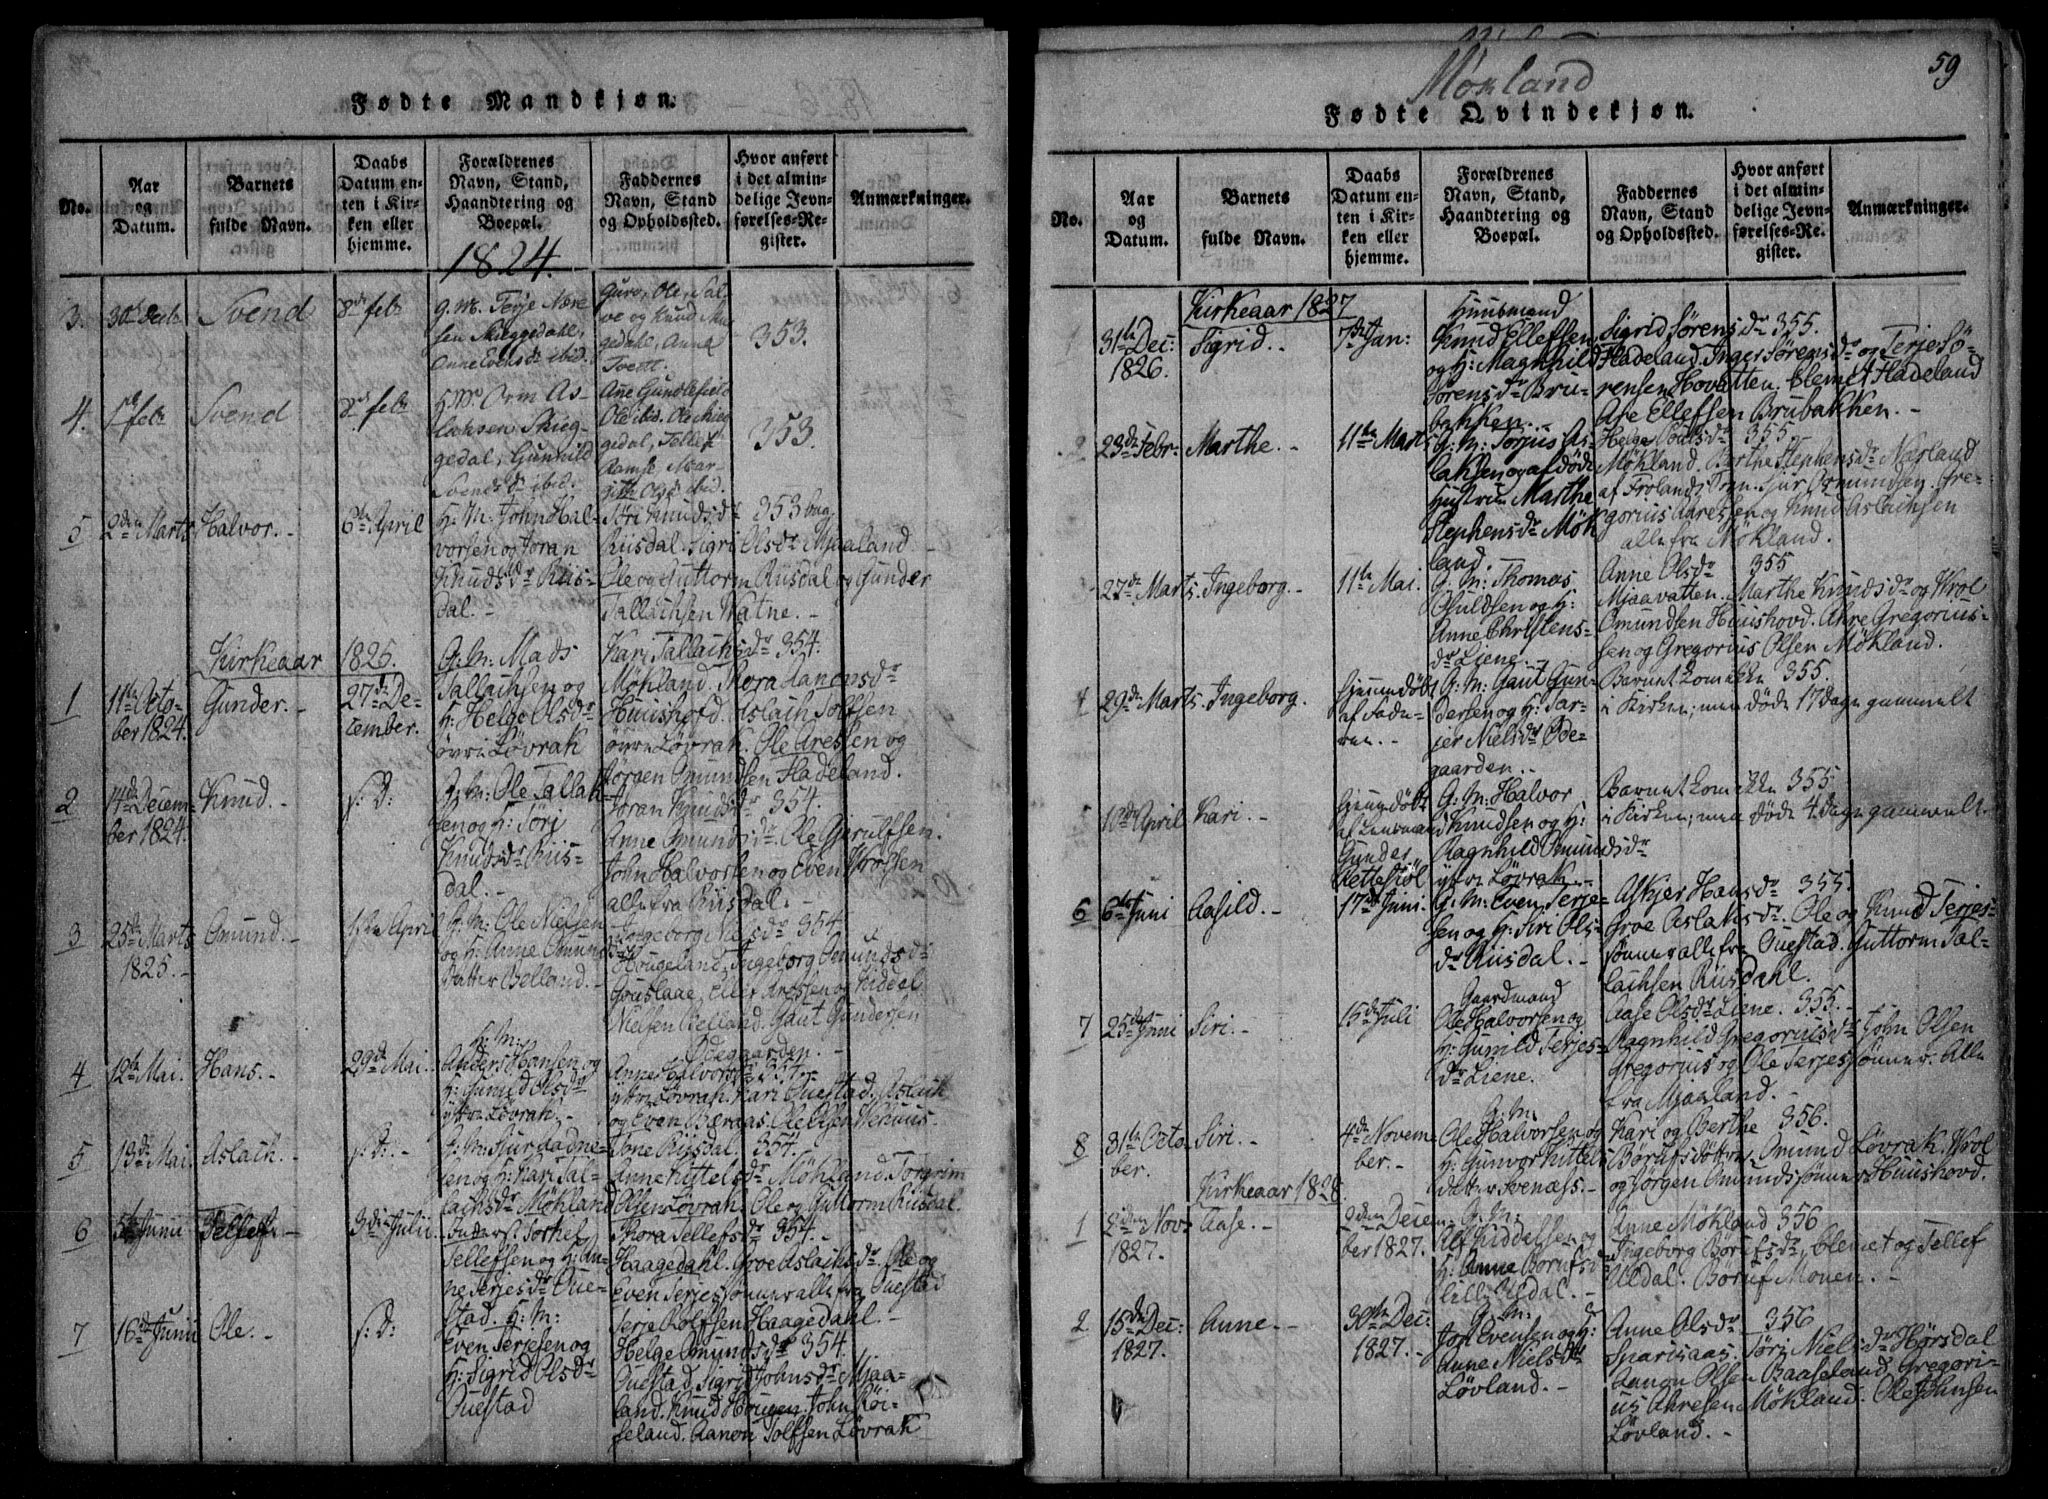 Fødte Mandkjøn.
No.
Aar
og
Datum.
Barnets
fulde Navn.
Daabs
Datum en-
ten i Kir-
ken eller
hjemme.
Forældrenes
Navn, Stand,
Haandtering og
Boepæl.
Faddernes
Navn, Stand
og Opholdssted.
Hvor anført
i det almin-
delige Jevn-
førelses-Re-
gister.
Anmærkninger.
1824.
3.
Svend
8de feb
G.M. Terje Næve
sen Skieggedahl,
Guro, Ole, Sal-
ve og Knud
gedahl, Anna
Tvett.
353.
4.
feb
Svend
8de feb
H.M. Orm As-
lachsen Skieg-
gedal, Gunhild
Svends dr ibid.
Ole ibid. Ole Skieg
gedal, Tellef
Ramse, Mar-
git Olsdr ibid.
353.
5
2den Marts
Halvor.-
6te April
G: M: John Hal-
vorsen og Joran
Knudsdr Riis-
dal.-
Siri Knudsdr 353 bag
Riisdal. Sigri Olsdr Mjaaland
Ole og Guttorm Riisdal og Gunder
Tallachsen Watne.-
Kirkeaar 1825.
1
11te Octo-
ber 1824.
Gunder.-
27de De-
cember.
G: M: Mads
Tallachsen og
H: Helge Olsdr
övre Løvrak
Kari Tallachsdr 354.
Møhland. Thora Aanensdr
Huushofd. Aslach Tolfsen
övre Løvrak. Ole Aressen og
Jörgen Omundsen Hadeland.
2
14de Decem-
ber 1824.
Knud.-
s: D:
G: M: Ole Tallak-
sen og H: Töri
Knudsdr Riis-
dal.-
Joran Knudsdr 354.
Anne Omundsdr Ole Gjerulfsen.
John Halvorsen og Even Wrolsen
alle fra Riisdal.-
3
25de Marts
1825.-
Omund.-
April
G: M: Ole Nielsen
og H: Anne Omunds
datter Belland.-
Ingeborg Nielsdr 354
Hougeland. Ingeborg Omundsdr
Gouslaae, Ellef Aressen og Kiddel
Nielsen Belland. Gaut Gundersen
Ødegaarden.-
4
12te Mai.
Hans.-
29de Mai.
G: M:
Anders Hansen og
H: Gunild Olsdr
yttre Løvrak.-
Anne Halvorsdr 354.
yttre Løvrak. Kari Ouestad. Aslach
og Even Bæraas. Ole Olsen Wehuus.
5
13de Mai.
Aslach.-
s: D:.-
G: M: Sjur Aadne-
sen og H: Kari Tal-
lachsdr Møhland
Tone Riisdal. 354.
Anne Kittelsdr Møhland. Torgrim
Olsen Løvrak. Ole og Guttorm Riisdal.
6
5te Junii
Tellef.-
3die Julii.
Torkel
Tellefsen og H: An-
ne Terjesdr Oue-
stad.
Thora Tellefsdr 354.-
Haagedahl. Groe Aslachsdr. Ole og
Even Terjessønner alle fra Ouestad
Terje Rolfsen Haagedahl.-
7
16de Junii
Ole.-
s: D:
G: M:
Even Terjesen og
H: Sigrid Olsdr
Ouestad
Helge Omundsdr 354.
Ouestad. Sigrid Johnsdr Mjaa-
land. Knud Hougen. John Röi-
seland. Aanon Tolfsen Løvrak
Møhland
59
Fødte Qvindekjøn.
No.
Aar
og
Datum.
Barnets
fulde Navn.
Daabs
Datum en-
ten i Kir-
ken eller
hjemme.
Forældrenes
Navn, Stand,
Haandtering og
Boepæl.
Faddernes
Navn, Stand
og Opholdssted.
Hvor anført
i det almin-
delige Jevn-
førelses-Re-
gister.
Anmærkninger.
Kirkeaar 1827
1
31te Dec:
1826.
Sigrid.-
7de Jan:
Huusmand
Knud Ellefsen
og H: Magnhild
Sörensdr Bru-
bakken.-
Sigrid Sörensdr 355.
Hadeland. Inger Sörensdr og Terje Sö-
rensen Hovatten. Clemet Hadeland
Are Ellefsen Brubakken.-
2
23de Febr:
Marthe.-
11te Marts
G: M: Torjus As-
laksen og afdöde
Hustru Marthe
Stephensdr Møh-
land.
Helge Poulsdr 355.
Møhland. Berthe Stephensdr Næsland
af Frolands Sogn. Sjur Osmundsen. Gre-
gorius Aaressen og Knud Aslachsen
alle fra Møhland.
27de Marts.
Ingeborg.-
11te Mai.
G: M: Thomas
Osuldsen og H:
Anne Christens-
dr Liene.-
Anne Olsdr 355
Mjaavatten. Marthe Knudsdr og Wrol
Omundsen Huushovd. Ahre Gregorius-
sen og Gregorius Olsen Møhland.
4
29de Marts.
Ingeborg.
Hjemmedöbt
af Fade-
ren.-
G: M: Gaut Gun-
dersen og H: Tar-
jer Nielsdr Øde-
gaarden.-
Barnet kom ikke 355.
i Kirken; men döde 17 Dage gammelt
5
10de April
Kari.-
Hjemmedöbt
af Lensmand
Gunder
Rettestöl
G: M: Halvor
Knudsen og H:
Ragnhild Omundsdr
yttre Løvrak.-
Barnet kom ikke 355
i Kirken; men döde 4 Dage gammelt.
6
6te Juni
Aasild.-
17de Juni.
G: M: Even Terje-
sen og H: Siri Ols-
dr Riisdal.-
Askjer Hansdr 355.
Groe Aslaksdr. Ole og Knud Terjes-
sønner alle fra Ouestad. Guttorm Tal-
lachsen Riisdahl.
7
25de Juni
Siri.-
15de Juli
Gaardmand
Ole Halvorsen og
H: Gunild Terjes-
dr Liene.
Aase Olsdr Liene. 355.-
Ragnhild Gregoriusdr John Olsen
Gregorius og Ole Terjessönner. Alle
fra Mjaaland.-
8
31te Octo-
ber.
Siri.-
4de Novem-
ber.-
G: M:
Ole Halvorsen og
H: Gunvor Kittels
datter Svenæss.-
Kari og Berthe 356.
Börufsdöttre, Omund Løvrak. Wrol
og Jörgen Omundssönner Huushovd.
Kirkeaar 1828.
1
2den Nov:
1827.
Aase.-
2den Decem-
ber 1827.
G: M:
Alf Kiddelsen og
H: Anne Börufsdr
Lille Uldal.-
Anne Møhland 356
Ingeborg Börufsdr, Clemet og Tellef
Uldal. Böruf Monen.-
2
15de Dec:
1827.
Anne.-
30te Dec:
1827.-
G: M:
Jon Evensen og H:
Anne Nielsdr
Løvland.-
Anne Olsdr 356
Sparsaas. Töri Nielsdr Hörsdal
Aanon Olsen Baaseland. Gregori-
us Ahresen Møhland. Ole Johnsen
Løvland.-